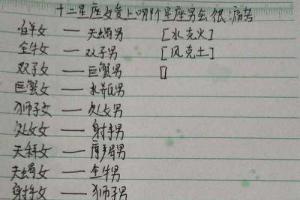 十二星座女爱上哪个星座男会很痛苦
白羊女 —— 天蝎男 [水克火]
金牛女 —— 双子男 [风克土]
双子女 —— 巨蟹男 []
巨蟹女 —— 水瓶男
狮子女 —— 处女男
处女女 —— 射手男
天秤女 —— 摩羯男
天蝎女 —— 金牛男
射手女 —— 狮子男